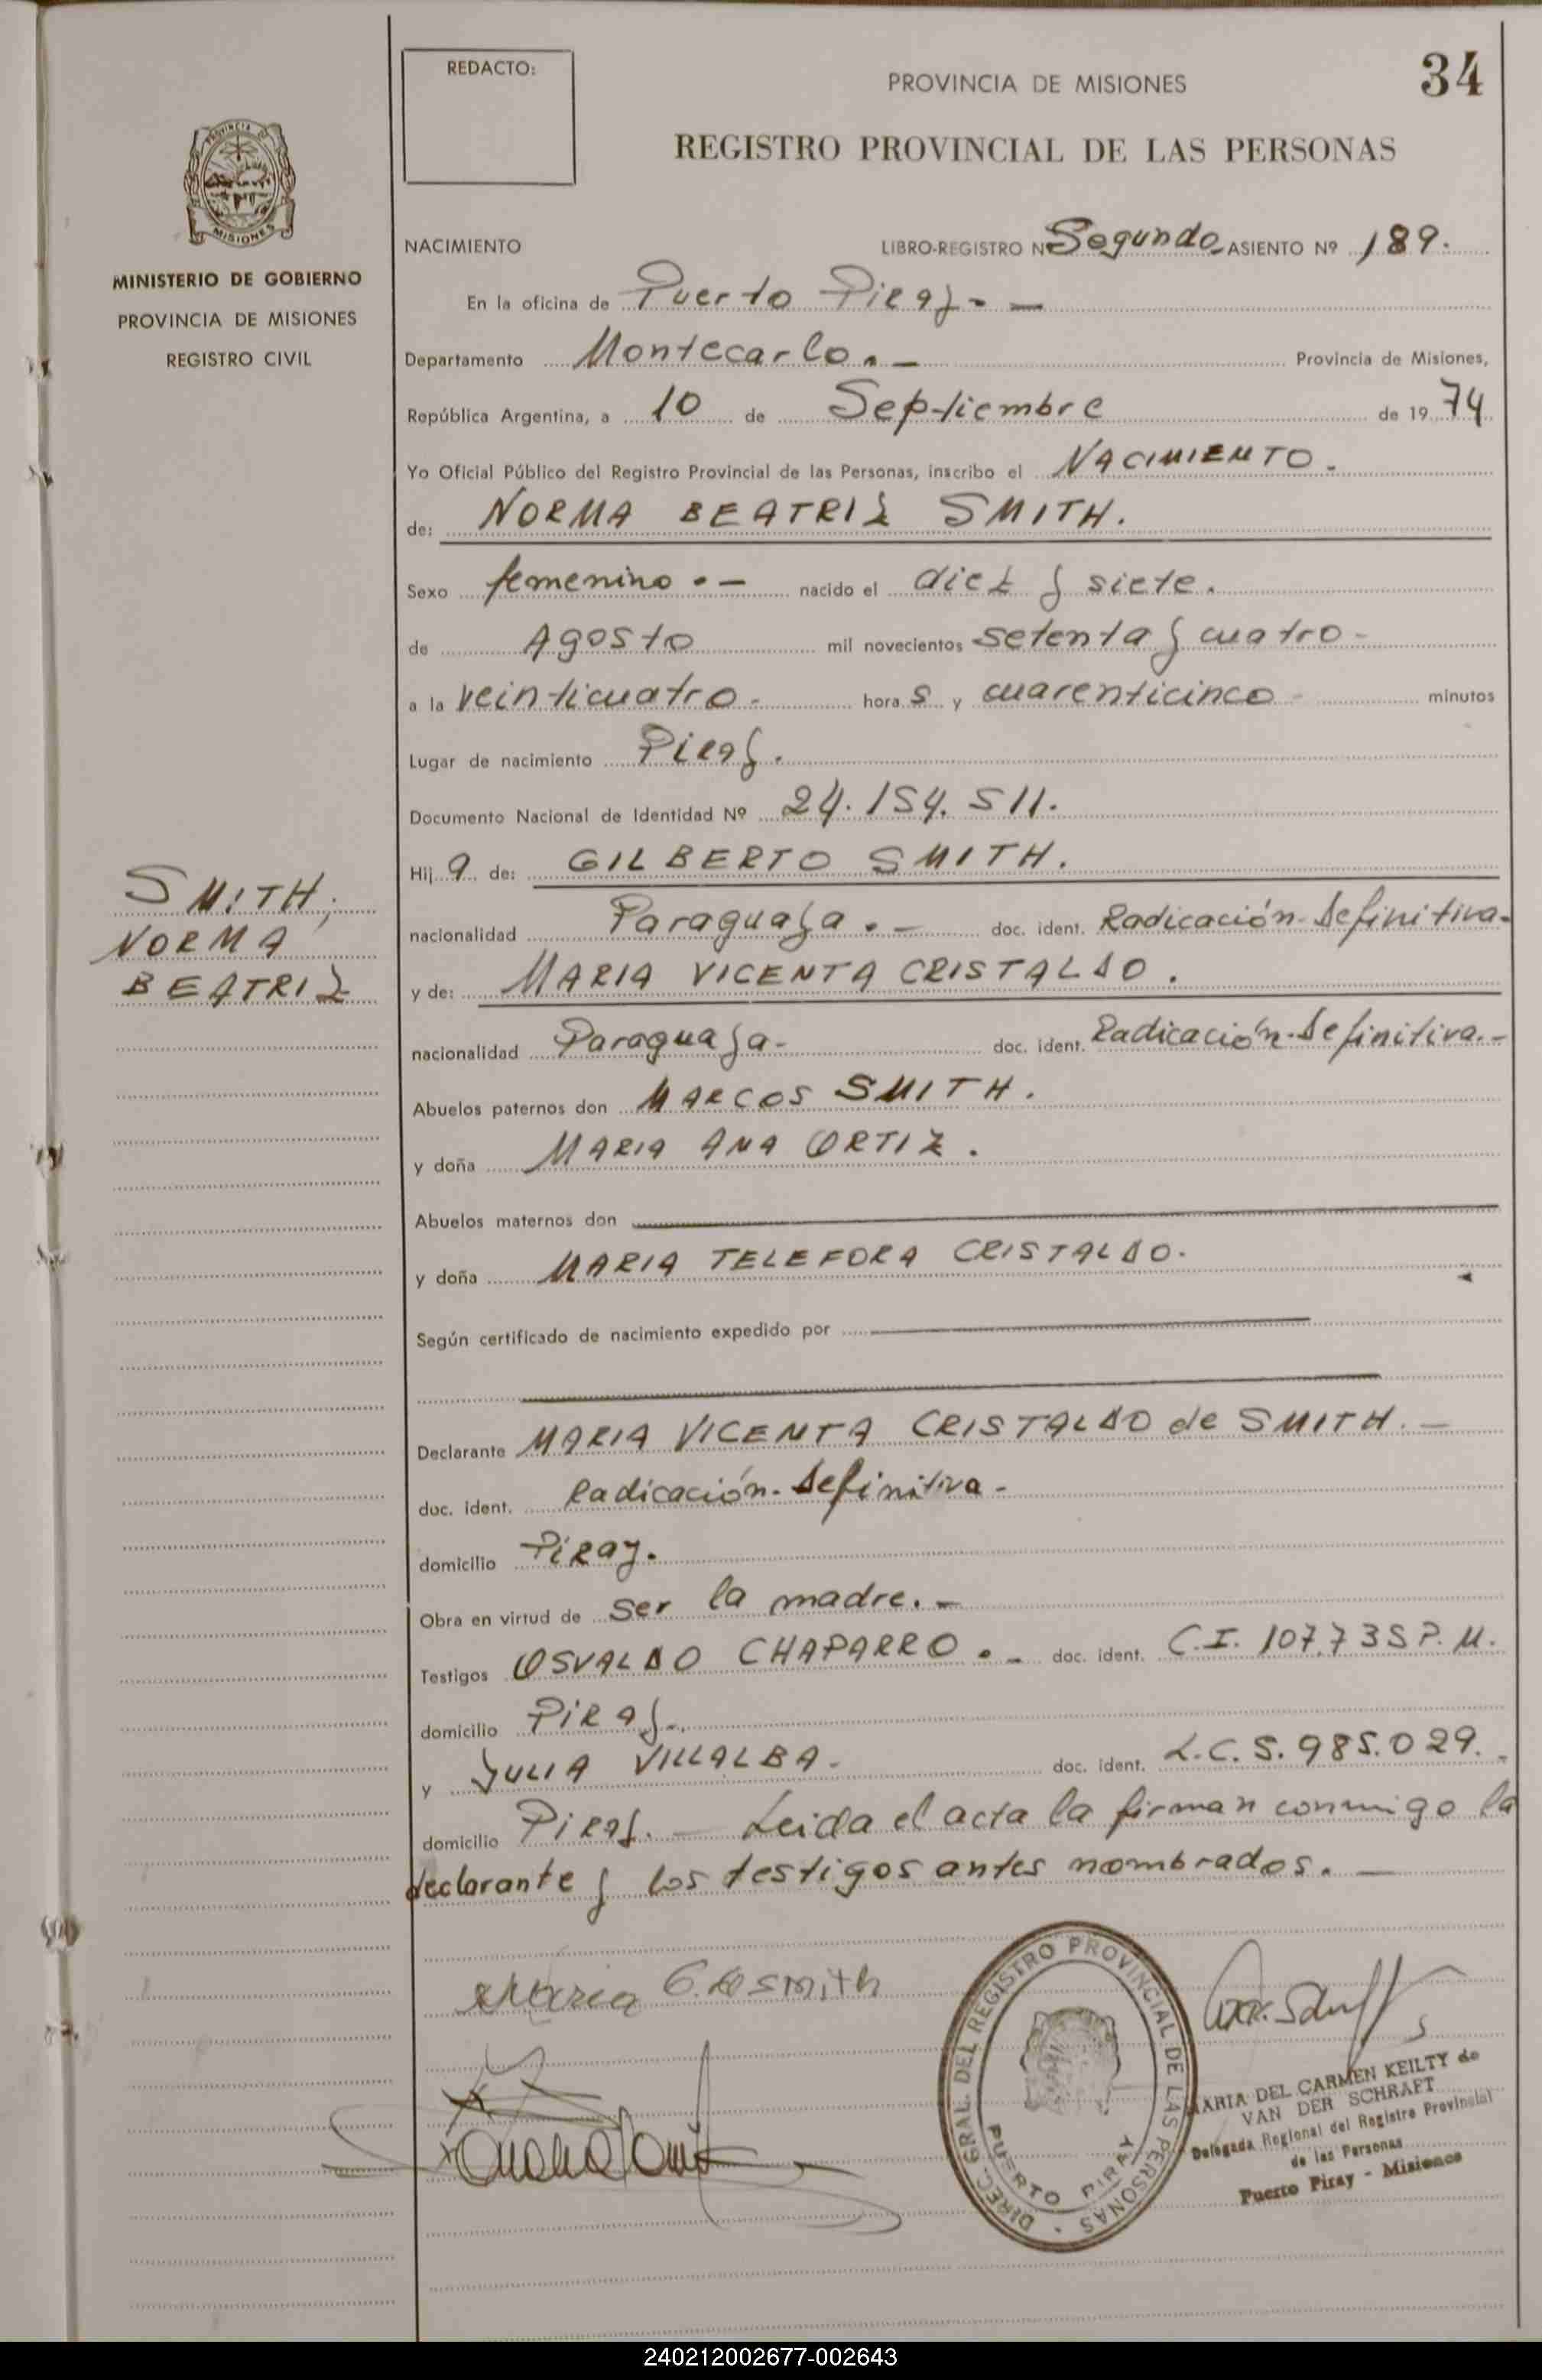 34
REDACTO:
PROVINCIA DE MISIONES
REGISTRO PROVINCIAL DE LAS PERSONAS
PROVINCIA DE
MISIONES
MINISTERIO DE GOBIERNO
PROVINCIA DE MISIONES
REGISTRO CIVIL
NACIMIENTO LIBRO-REGISTRO Nº Segundo- ASIENTO Nº 189.
En la oficina de Puerto Piray - —
Departamento Montecarlo. — Provincia de Misiones,
República Argentina, a 10 de Septiembre de 1974
Yo Oficial Público del Registro Provincial de las Personas, inscribo el NACIMIENTO -
de: NORMA BEATRIZ SMITH.
Sexo femenino . — nacido el diez y siete.
de Agosto mil novecientos setenta y cuatro -
a la veinticuatro - hora s y cuarenticinco - minutos
Lugar de nacimiento Piray.
Documento Nacional de Identidad Nº 24.154.511.
Hij a de: GILBERTO SMITH.
nacionalidad Paraguaya . — doc. ident. Radicación-Definitiva-
y de: MARIA VICENTA CRISTALDO.
nacionalidad Paraguaya - doc. ident. Radicación-Definitiva.-
Abuelos paternos don MARCOS SMITH.
y doña MARIA ANA ORTIZ.
Abuelos maternos don
y doña MARIA TELEFORA CRISTALDO.
Según certificado de nacimiento expedido por
Declarante MARIA VICENTA CRISTALDO de SMITH. —
doc. ident. Radicación-Definitiva -
domicilio Piray.
Obra en virtud de ser la madre. -
Testigos OSVALDO CHAPARRO . - doc. ident. C.I. 107.735 P.M.
domicilio Piray -.
y JULIA VILLALBA - doc. ident. L.C. 5.985.029.
domicilio Piray. — Leida el acta la firman conmigo la
declarante y los testigos antes nombrados. —
SMITH;
NORMA
BEATRIZ
Maria C. de smith
DIREC. GRAL. DEL REGISTRO PROVINCIAL DE LAS PERSONAS
PUERTO PIRAY
MARIA DEL CARMEN KEILTY de
VAN DER SCHRAFT
Delegada Regional del Registro Provincial
de las Personas
Puerto Piray - Misiones
240212002677-002643